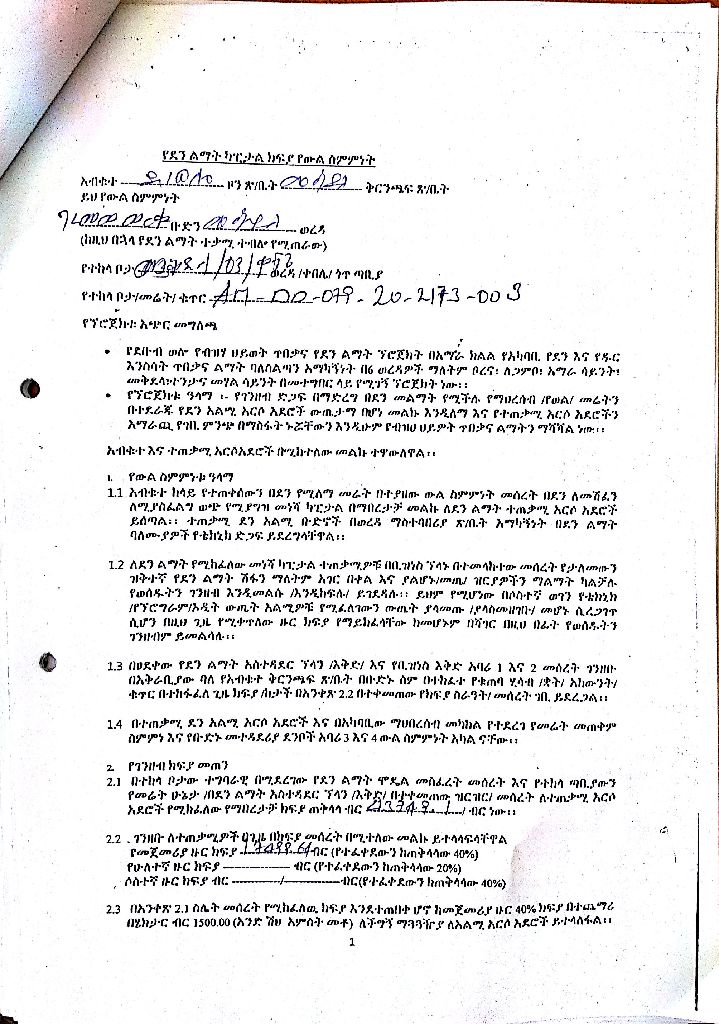 የደን ልማት ካፒታል ክፍያ የውል ስምምነት
አብቁተ ዞን ጽ/ቤት ቅርንጫፍ ጽ/ቤት
ይህ የውል ስምምነት
ቡድን ወረዳ
(ከዚህ በኋላ የደን ልማት ተቃሚ ተብሎ የሚጠራው)
የተከላ ቦታ ወረዳ /ቀበሌ/ ጎጥ ጣቢያ
የተከላ ቦታ/መሬት/ ቁጥር AM - DD -079 - 20 - 2173 - 003
የፕሮጀክቱ አጭር መግለጫ
• የደቡብ ወሎ የብዝሃ ህይወት ጥበቃና የደን ልማት ፕሮጀክት በአማራ ክልል የአካባቢ የደን እና የዱር
እንስሳት ጥበቃና ልማት ባለስልጣን አማካኝነት በ6 ወረዳዎች ማለትም ቦረና፣ ሌጋምቦ፣ አማራ ሳይንት፣
መቅደላ፣ ተንታና መሃል ሳይንት በመተግበር ላይ የሚገኝ ፕሮጀክት ነው፡፡
• የፕሮጀክቱ ዓላማ ፡- የገንዘብ ድጋፍ በማድረግ በደን መልማት የሚችል የማህረሰብ /የወል/ መሬትን
በተደራጁ የደን አልሚ አርሶ አደሮች ውጤታማ በሆነ መልኩ እንዲለማ እና የተጠቃሚ አርሶ አደሮችን
አማራጪ የገቢ ምንጭ በማስፋት ኑሯቸውን እንዲሁም የብዝሀ ህይዎት ጥበቃና ልማትን ማሻሻል ነው፡፡
አብቁተ እና ተጠቃሚ አርሶአደሮች በሚከተለው መልኩ ተዋውለዋል፡፡
1. የውል ስምምነቱ ዓላማ
1.1 አብቁተ ከላይ የተጠቀሰውን በደን የሚለማ መሬት በተያዘው ውል ስምምነት መሰረት በደን ለመሸፈን
ለሚያስፈልግ ወጭ የሚያግዝ መነሻ ካፒታል በማበረታቻ መልኩ ለደን ልማት ተጠቃሚ አርሶ አደሮች
ይሰጣል፡፡ ተጠቃሚ ደን አልሚ ቡድኖች በወረዳ ማስተባበሪያ ጽ/ቤት አማካኝነት በደን ልማት
ባለሙያዎች የቴክኒክ ድጋፍ ይደረግላቸዋል፡፡
1.2 ለደን ልማት የሚከፈለው መነሻ ካፒታል ተጠቃሚዎቹ በቢዝነስ ፕላኑ በተመላከተው መሰረት የታለመውን
ዝቅተኛ የደን ልማት ሽፋን ማለትም አገር በቀል እና ያልሆኑ/መጤ/ ዝርያዎችን ማልማት ካልቻሉ
የወሰዱትን ገንዘብ እንዲመልሱ /እንዲከፍሉ/ ይገደዳሉ፡፡ ይህም የሚሆነው በሶስተኛ ወገን የቴክኒክ
/የፕሮግራም/ኦዲት ውጤት አልሚዎቹ የሚፈለገውን ውጤት ያላመጡ /ያላስመዘገቡ/ መሆኑ ሲረጋገጥ
ሲሆን በዚህ ጊዜ የሚቀጥለው ዙር ክፍያ የማይከፈላቸው ከመሆኑም በሻገር በዚህ በፊት የወሰዱትን
ገንዘብም ይመልሳሉ፡፡
1.3 በፀደቀው የደን ልማት አስተዳደር ፕላን /እቅድ/ እና የቢዝነስ እቅድ አባሪ 1 እና 2 መሰረት ገንዘቡ
በአቅራቢያው ባለ የአብቁተ ቅርንጫፍ ጽ/ቤት በቡድኑ ስም በተከፈተ የቁጠባ ሂሳብ /ቋት/ አካውንት/
ቁጥር በተከፋፈለ ጊዜ ክፍያ /ከታች በአንቀጽ 2.2 በተቀመጠው የክፍያ ስራዓት/ መሰረት ገቢ ይደረጋል፡፡
1.4 በተጠቃሚ ደን አልሚ አርሶ አደሮች እና በአካባቢው ማህበረሰብ መካከል የተደረገ የመሬት መጠቀም
ስምምነ እና የቡድኑ መተዳደሪያ ደንቦች አባሪ 3 እና 4 ውል ስምምነት አካል ናቸው፡፡
2. የገንዘብ ክፍያ መጠን
2.1 በተከላ ቦታው ተግባራዊ በሚደረገው የደን ልማት ሞዴል መስፈረት መሰረት እና የተከላ ጣቢያውን
የመሬት ሁኔታ /በደን ልማት አስተዳደር ፕላን /እቅድ/ በተቀመጠው ዝርዝር/ መሰረት ለተጠቃሚ አርሶ
አደሮች የሚከፈለው የማበረታቻ ክፍያ ጠቅላላ ብር / ብር ነው፡፡
2.2 ገንዘቡ ለተጠቃሚዎች በጊዜ በክፍያ መሰረት በሚተለው መልኩ ይተላለፍላቸዋል
የመጀመሪያ ዙር ክፍያ ብር (የተፈቀደውን ከጠቅላላው 40%)
የሁለተኛ ዙር ክፍያ ---------------- ብር (የተፈቀደውን ከጠቅላላው 20%)
ሶስተኛ ዙር ክፍያ ብር ------------/------------- ብር(የተፈቀደውን ከጠቅላላው 40%)
2.3 በአንቀጽ 2.1 ስሌት መሰረት የሚከፈለዉ ክፍያ እንደተጠበቀ ሆኖ ከመጀመሪያ ዙር 40% ክፍያ በተጨማሪ
በሄክታር ብር 1500.00 (አንድ ሽህ አምስት መቶ) ለችግኝ ማጓጓዥያ ለአልሚ አርሶ አደሮች ይተላለፋል፡፡
1